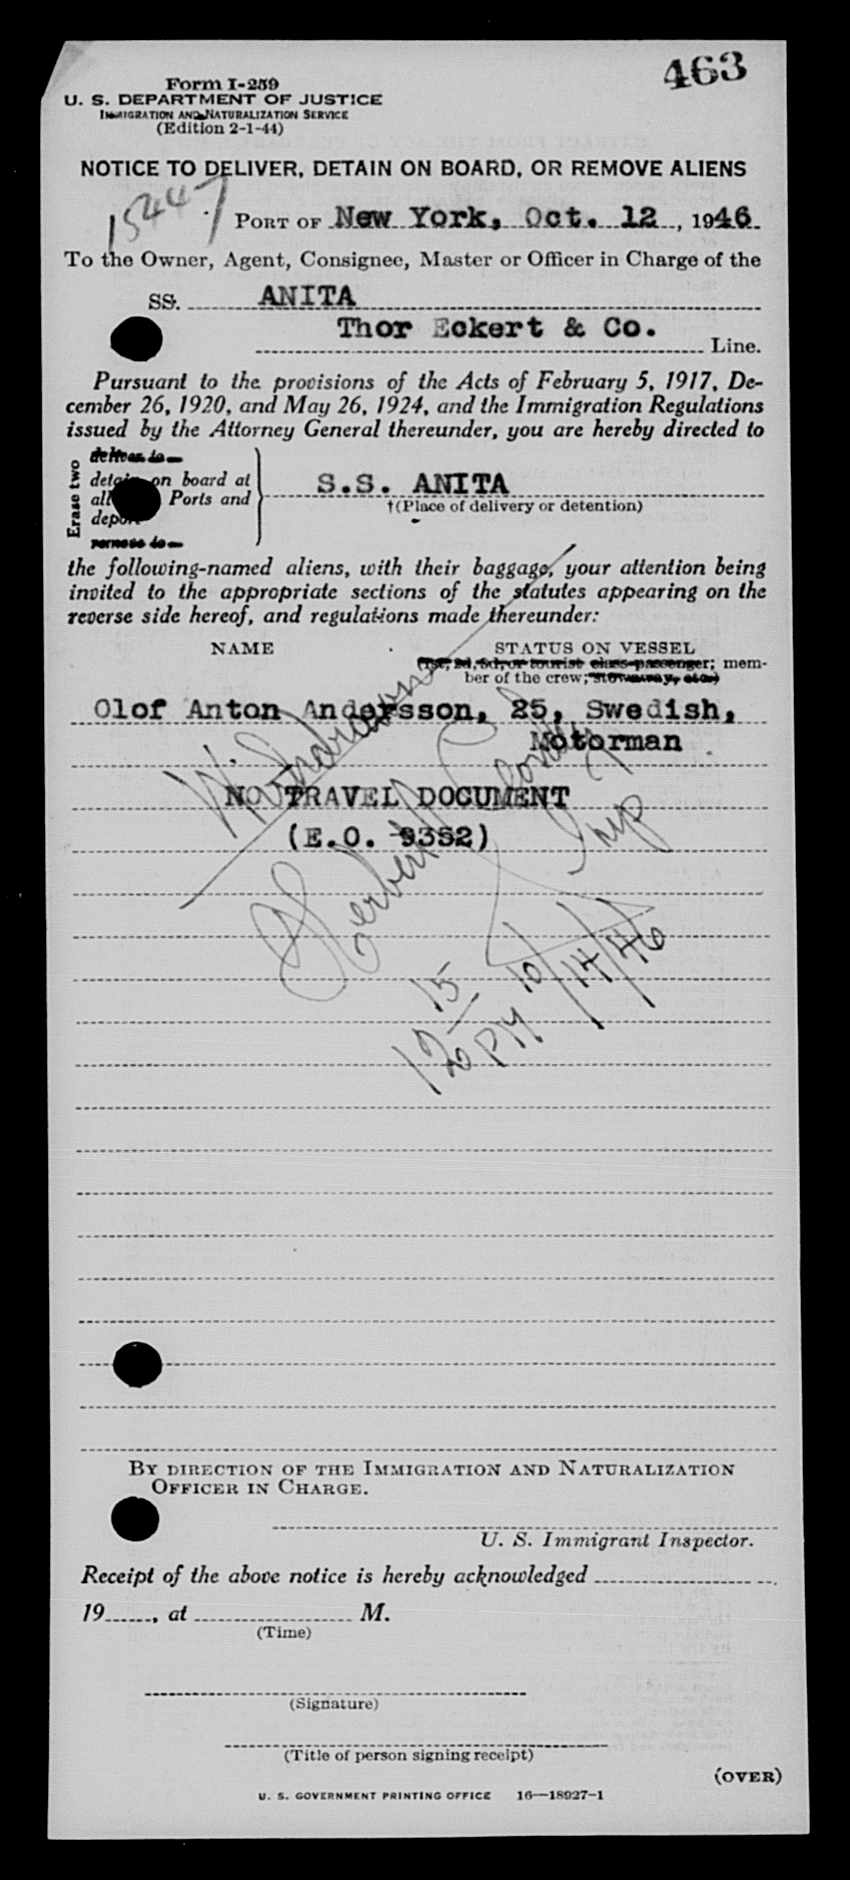 463
Form I-259
U. S. DEPARTMENT OF JUSTICE
IMMIGRATION AND NATURALIZATION SERVICE
(Edition 2-1-44)
NOTICE TO DELIVER, DETAIN ON BOARD, OR REMOVE ALIENS
15447
PORT OF New York, Oct. 12, 1946
To the Owner, Agent, Consignee, Master or Officer in Charge of the
SS. ANITA
Thor Eckert & Co.
Line.
Pursuant to the provisions of the Acts of February 5, 1917, De-
cember 26, 1920, and May 26, 1924, and the Immigration Regulations
issued by the Attorney General thereunder, you are hereby directed to
Erase two
deliver to
detain on board at
all Ports and
deport
remove to
S.S. ANITA
†(Place of delivery or detention)
the following-named aliens, with their baggage, your attention being
invited to the appropriate sections of the statutes appearing on the
reverse side hereof, and regulations made thereunder:
NAME STATUS ON VESSEL
(1st, 2d, 3d, or tourist class passenger; mem-
ber of the crew; stowaway, etc.)
Olof Anton Andersson, 25, Swedish,
Motorman
NO TRAVEL DOCUMENT
(E.O. 9352)
Withdrawn
Herbert
Insp
12 15 PM 10/14/46
BY DIRECTION OF THE IMMIGRATION AND NATURALIZATION
OFFICER IN CHARGE.
U. S. Immigrant Inspector.
Receipt of the above notice is hereby acknowledged
19 , at M.
(Time)
(Signature)
(Title of person signing receipt)
(OVER)
U. S. GOVERNMENT PRINTING OFFICE 16—18927-1